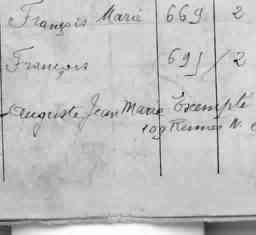 François Marie 669 2
François 691/2
Auguste Jean Marie Exempté
109 Rennes N.